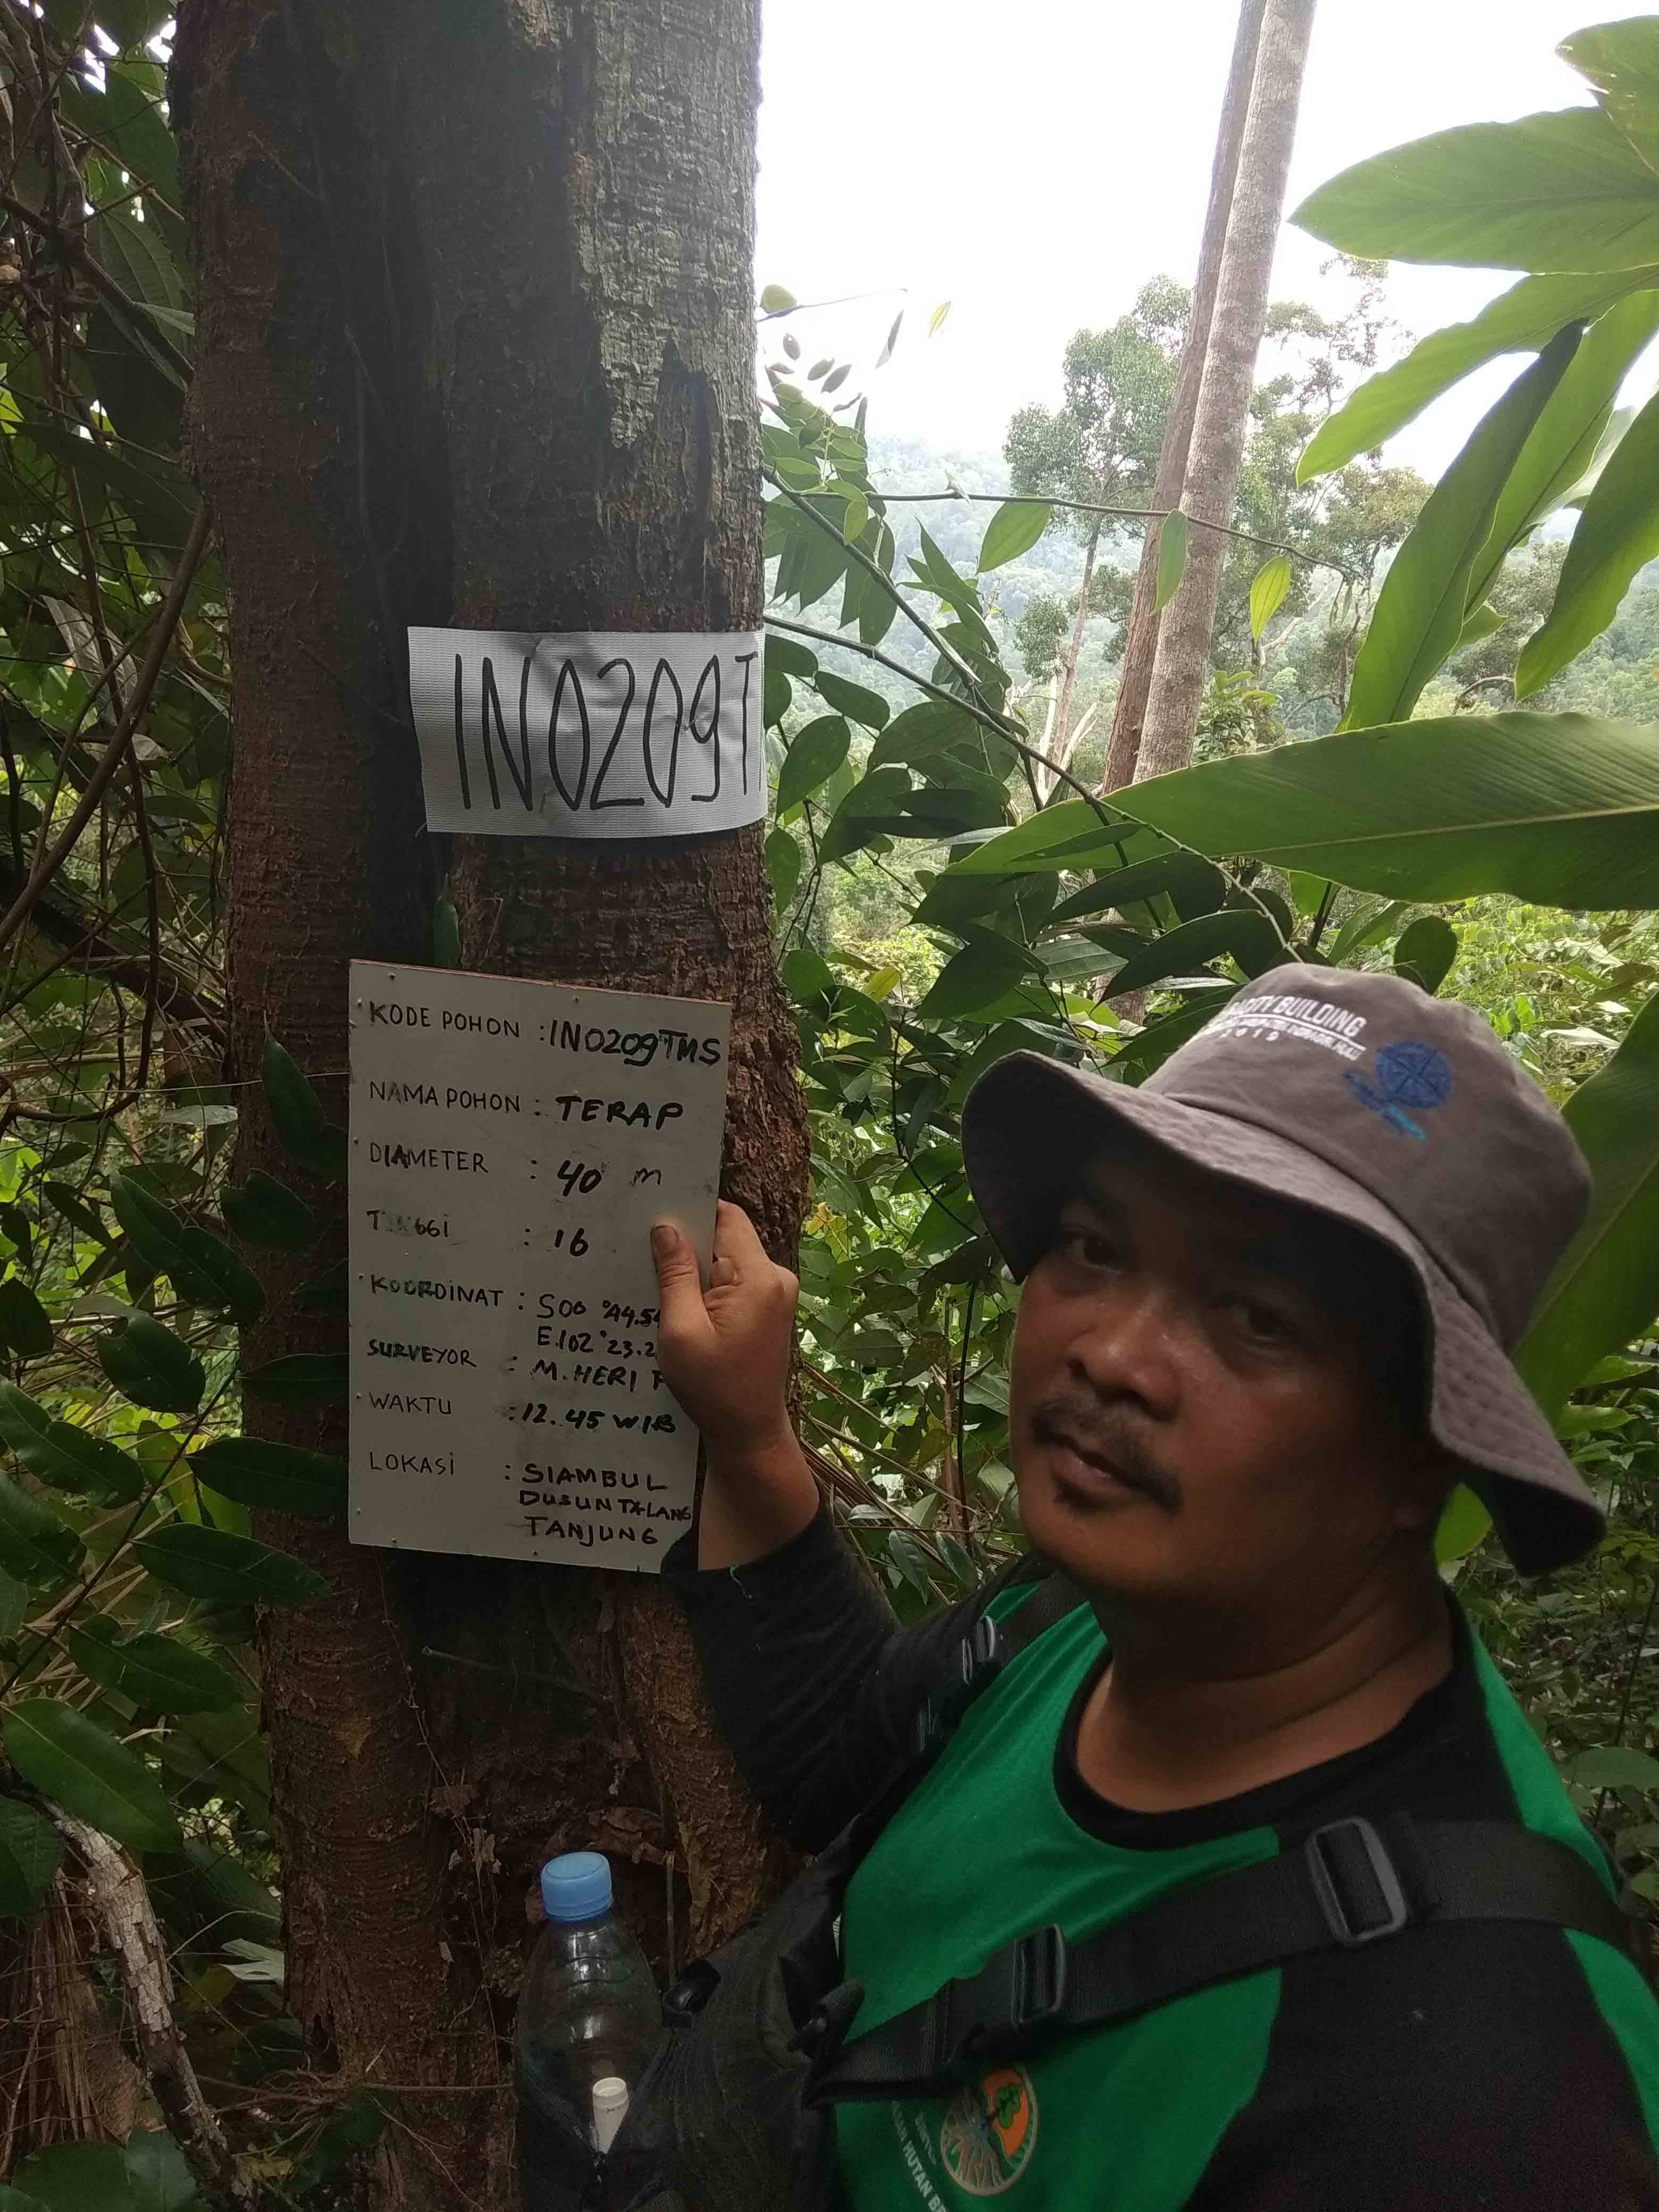 IN0209T
KODE POHON : IN0209TMS
NAMA POHON : TERAP
DIAMETER : 40 m
TINGGI : 16
KOORDINAT : S00 °44.5
E.102 °23.2
SURVEYOR : M. HERI
WAKTU : 12.45 WIB
LOKASI : SIAMBUL
DUSUN TALANG
TANJUNG
BUILDING
2019
HUTAN